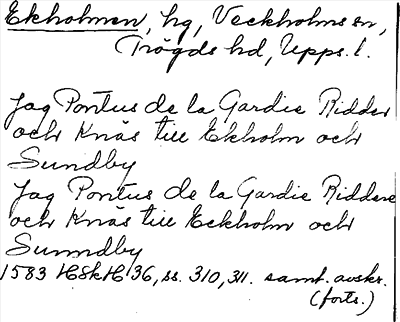 Ekholmen, hg, Veckholms sn,
Trögds hd, Upps. l.
Jag Pontus de la Gardie Ridder
och Knäs till Ekholm och
Sundby
Jag Pontus de la Gardie Riddere
och Knäs till Eckholm och
Sunndby
1583 HSkH 36, ss. 310, 311. samt. avskr.
(forts.)